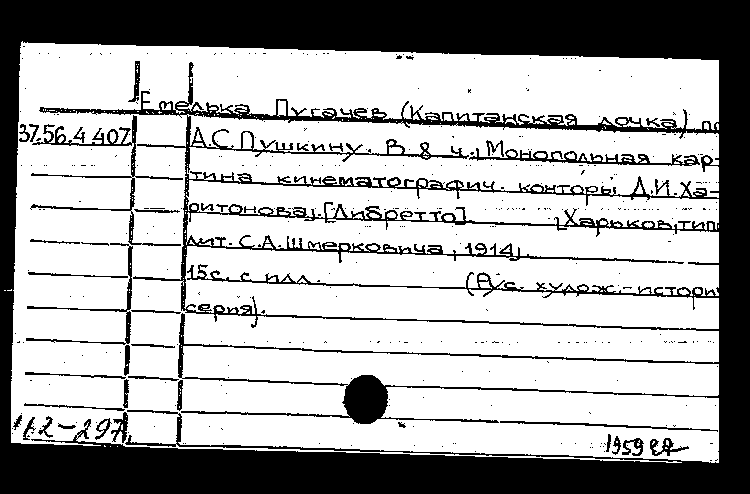 Емелька Пугачев (Капитанская дочка) по
37.56.4.407 А.С.Пушкину. В 8 ч. Монопольная кар-
тина кинематографич. конторы Д.И.Ха-
ритонова. [Либретто]. [Харьков, тип.
лит. С.А.Шмерковича, 1914].
15с. с илл. (Рус. худож.-историч
серия).
112-297
1959